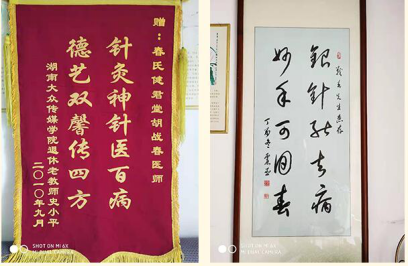 赠：春氏健君堂胡战春医师
针灸神针医百病
德艺双馨传四方
湖南大众传媒学院退休老教师史小平
二〇一〇年九月
SHOT ON MI 6X
银针能去病
妙手可回春
SHOT ON MI 6X